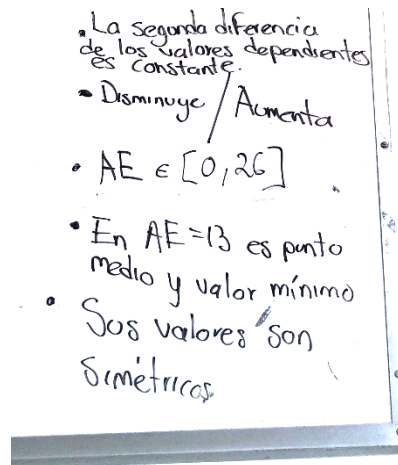 • La segunda diferencia
de los valores dependientes
es constante.
• Disminuye / Aumenta
• AE ∈ [0,26]
• En AE=13 es punto
medio y valor mínimo
• Sus valores son
simétricos